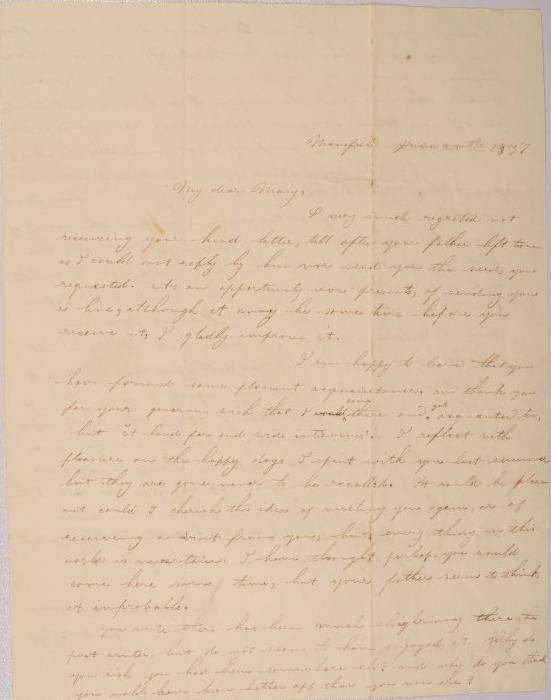 Mansfield June 1847
My dear Mary,
I very much regreted not
receiving your kind letter, till after your father left town
as I could not reply by him nor send you the seeds you
requested. As an opportunity now presents, of sending you
a line, although it may be some time before you
receive it, I gladly improve it.
I am happy to learn that you
have formed some pleasant acquaintances, and thank you
for your generous wish that I could come there and get acquainted too,
but "a land far and wide intervenes". I reflect with
pleasure on the happy days I spent with you last summer
but they are gone never to be recalled. It would be pleas
ant could I cherish the idea of visiting you again, or of
receiving a visit from you, but every thing in this
world is uncertain. I have thought perhaps you would
come here some time, but your father seems to think
it improbable.
You write there has been much sleighriding there the
past winter, but do not seem to have enjoyed it. Why do
you wish you had been somewhere else? and why do you think
you would have been better off than you now are?